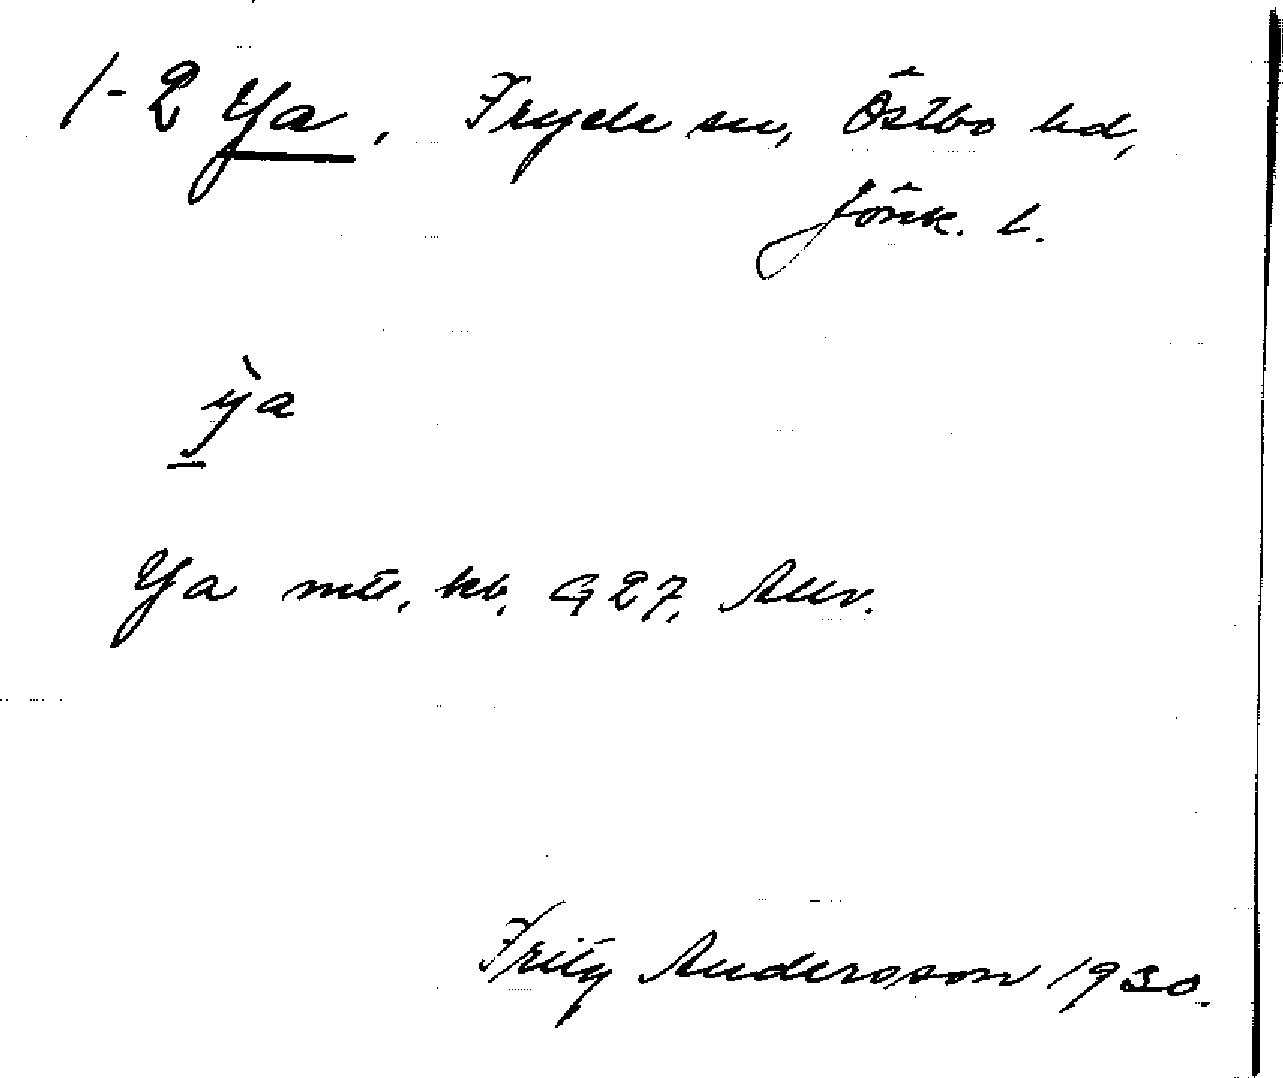 1-2 Ya, Fryele sn, Östbo hd,
Jönk. l.
ỳa
Ya mtl, kb. G 27, Anr.
Fritz Andersson 1930.